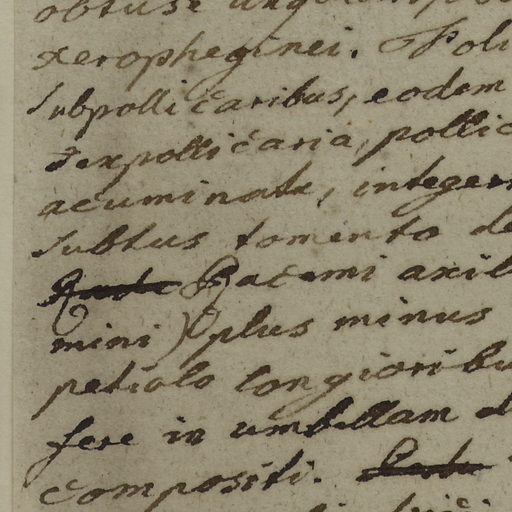 obtuse
xeropheginei. Foli
subpollicaribus, eodem
sexpollicaria, pollic
acuminata, integer
subtus tomento de
Racemi axil
mini) plus minus
petiolo longioribu
fere in umbellam d
compositi.